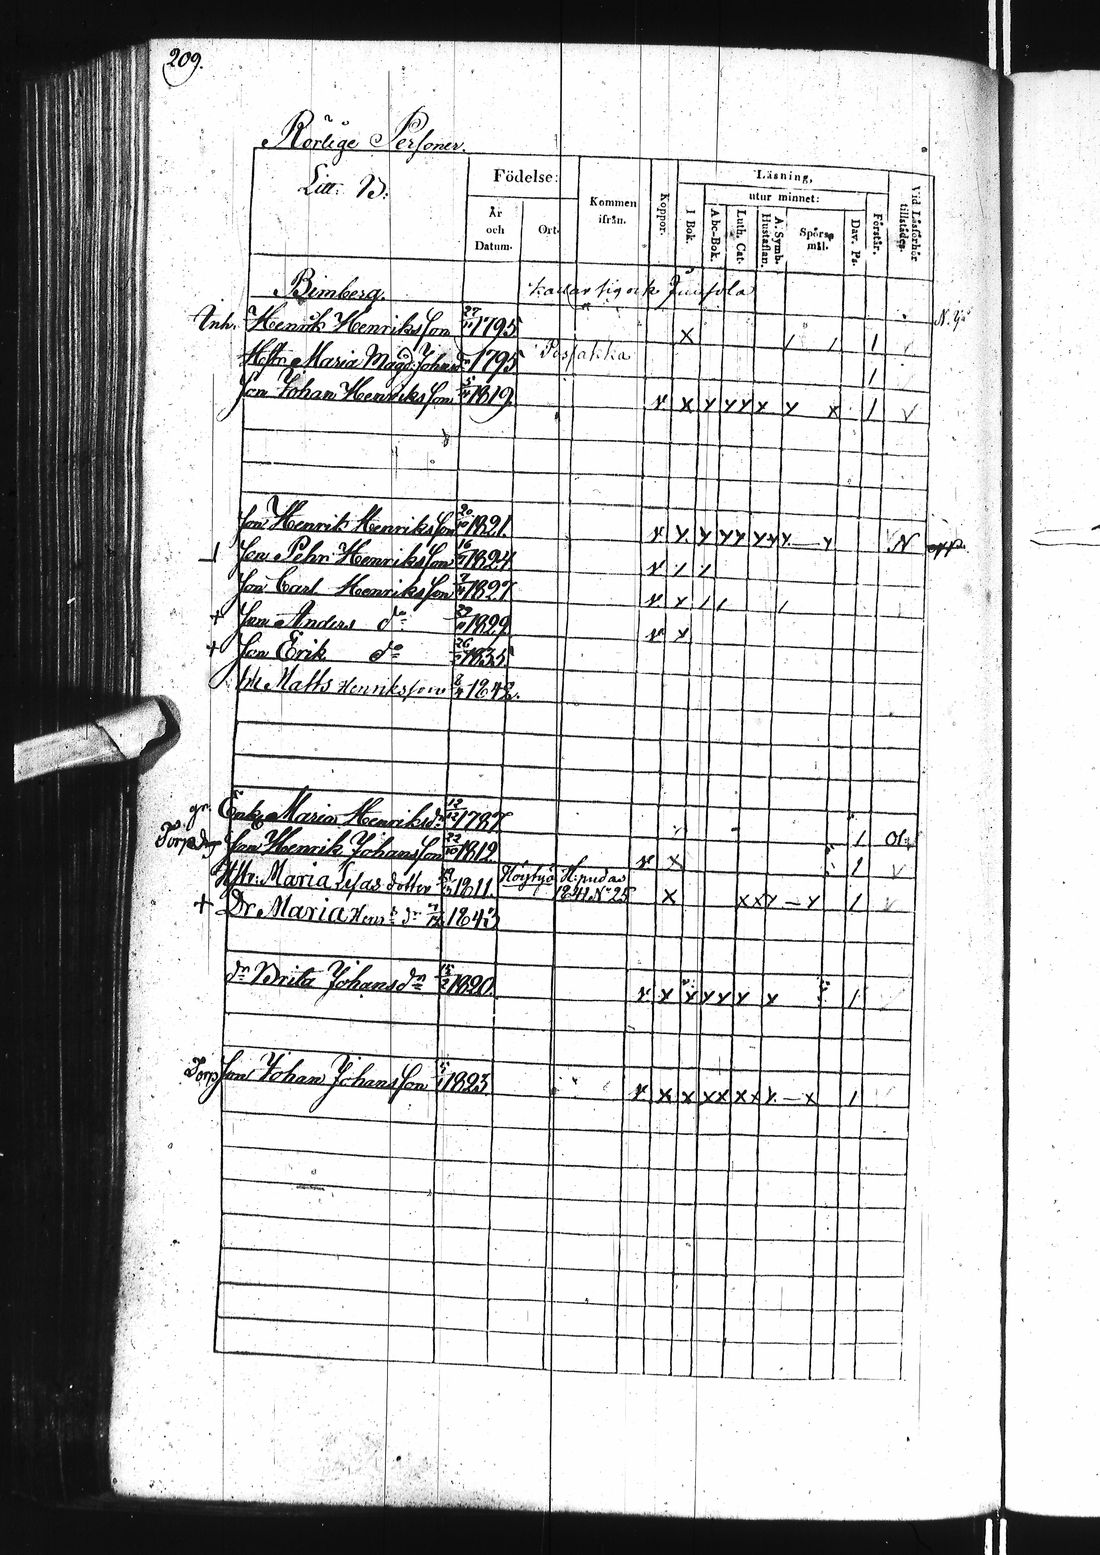 209.
Rörlige Personer.
Litt: B:
Födelse:
År och Datum.
Ort.
Kommen ifrån.
Koppor.
Läsning,
utur minnet:
I Bok.
Abc-Bok.
Luth. Cat.
A. Symb. Hustaflan.
Spörsmål.
Dav. Ps.
Förstår.
Vid Läsförhör tillstädes.
Bimberg. kallar sig ock Junsola
Inh. Henrik Henriksson 1795 x / / /
Hstr. Maria Magd: Johansdr 1795 /
Son Johan Henriksson 1819 v x y y y x y x / v
Son Henrik Henriksson 20/10 1821. v y y y y y y y — y N
Son Pehr Henriksson 1824 v / /
Son Carl Henriksson 1827 v y / / /
+ Son Anders do 1829 v y
+ Son Erik do 26 1835
Matts Henriksson 8/4 1842.
Enk. Maria Henriksdr 12/12 1787 /
Torp Son Henrik Johansson 22/10 1812 v x / v
Hstr: Maria Esias dotter 1811. H:pudas 1841 No 25 x x x y — y / v
+ Dr Maria Henr:s dr 1843
dr Brita Johansdr 15/2 1820. v x y y y y y /
Torp Son Johan Johansson 1823 v x x x x x x y — x /